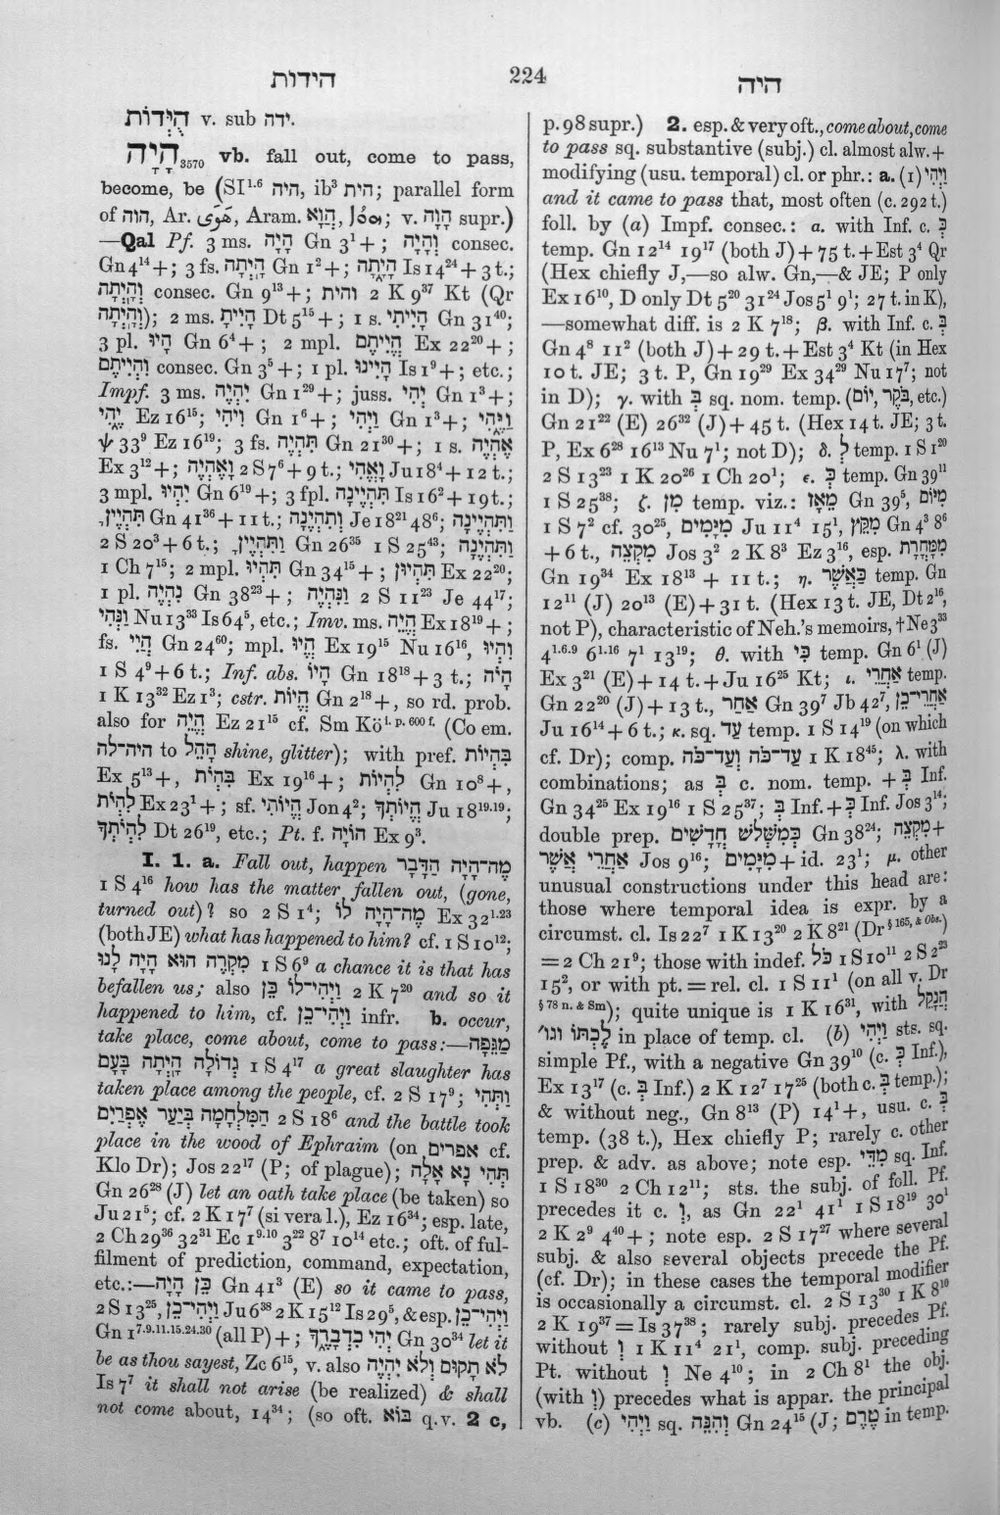 הידות
224
היה
הֻיְּדוֹת v. sub ידה.
הָיָה 3570 vb. fall out, come to pass,
become, be (SI1.6 היה, ib3 הית; parallel form
of הוה, Ar. هَوَى, Aram. הֲוָא, ܗܘܳܐ; v. הָוָה supr.)
—Qal Pf. 3 ms. הָיָה Gn 31+; וְהָיָה consec.
Gn 414+; 3 fs. הָיְתָה Gn 12+; הָיָתָה Is 1424+3 t.;
וְהָיְתָה consec. Gn 913+; והית 2 K 937 Kt (Qr
וְהָיְתָה); 2 ms. הָיִיתָ Dt 515+; 1 s. הָיִיתִי Gn 3140;
3 pl. הָיוּ Gn 64+; 2 mpl. הֱיִיתֶם Ex 2220+;
וִהְיִיתֶם consec. Gn 35+; 1 pl. הָיִינוּ Is 19+; etc.;
Impf. 3 ms. יִהְיֶה Gn 129+; juss. יְהִי Gn 13+;
יֶהִי Ez 1615; וִיהִי Gn 16+; וַיְהִי Gn 13+; וַיֶּהִי
ψ 339 Ez 1619; 3 fs. תִּהְיֶה Gn 2130+; 1 s. אֶהְיֶה
Ex 312+; וָאֶהְיֶה 2 S 76+9 t.; וָאֱהִי Ju 184+12 t.;
3 mpl. יִהְיוּ Gn 619+; 3 fpl. תִּהְיֶינָה Is 162+19 t.;
תִּהְיֶיןָ Gn 4136+11 t.; וְתִהְיֶינָה Je 1821 486; וַתִּהְיֶינָה
2 S 203+6 t.; וַתִּהְיֶיןָ Gn 2635 1 S 2543; וַתִּהְיֶנָה
1 Ch 715; 2 mpl. תִּהְיוּ Gn 3415+; תִּהְיוּן Ex 2220;
1 pl. נִהְיֶה Gn 3823+; וַנִּהְיֶה 2 S 1123 Je 4417;
וַנְּהִי Nu 1333 Is 645, etc.; Imv. ms. הֱיֵה Ex 1819+;
fs. הֲיִי Gn 2460; mpl. הֱיוּ Ex 1915 Nu 1616, וִהְיוּ
1 S 49+6 t.; Inf. abs. הָיוֹ Gn 1818+3 t.; הָיֹה
1 K 1332 Ez 13; cstr. הֱיוֹת Gn 218+, so rd. prob.
also for הֱיֵה Ez 2115 cf. Sm Köl. p. 600 f. (Co em.
היה־לה to הָהֵל shine, glitter); with pref. בִּהְיוֹת
Ex 513+, בִּהְיֹת Ex 1916+; לִהְיוֹת Gn 108+,
לִהְיֹת Ex 231+; sf. הֱיוֹתִי Jon 42; הֱיוֹתְךָ Ju 1819.19;
לִהְיֹתְךָ Dt 2619, etc.; Pt. f. הוֹיָה Ex 93.
I. 1. a. Fall out, happen מֶה־הָיָה הַדָּבָר
1 S 416 how has the matter fallen out, (gone,
turned out)? so 2 S 14; מֶה־הָיָה לוֹ Ex 321.23
(both JE) what has happened to him? cf. 1 S 1012;
מִקְרֶה הוּא הָיָה לָנוּ 1 S 69 a chance it is that has
befallen us; also וַיְהִי־לוֹ כֵּן 2 K 720 and so it
happened to him, cf. וַיְהִי־כֵן infr. b. occur,
take place, come about, come to pass:—מַגֵּפָה
גְדוֹלָה הָיְתָה בָּעָם 1 S 417 a great slaughter has
taken place among the people, cf. 2 S 179; וַתְּהִי
הַמִּלְחָמָה בְּיַעַר אֶפְרָיִם 2 S 186 and the battle took
place in the wood of Ephraim (on אפרים cf.
Klo Dr); Jos 2217 (P; of plague); תְּהִי נָא אָלָה
Gn 2628 (J) let an oath take place (be taken) so
Ju 215; cf. 2 K 177 (si vera l.), Ez 1634; esp. late,
2 Ch 2936 3231 Ec 19.10 322 87 1014 etc.; oft. of ful-
filment of prediction, command, expectation,
etc.:—כֵּן הָיָה Gn 413 (E) so it came to pass,
2 S 1325, וַיְהִי־כֵן Ju 638 2 K 1512 Is 295, & esp. וַיְהִי־כֵן
Gn 17.9.11.15.24.30 (all P)+; יְהִי כִדְבָרֶךָ Gn 3034 let it
be as thou sayest, Zc 615, v. also לֹא תָקוּם וְלֹא יִהְיֶה
Is 77 it shall not arise (be realized) & shall
not come about, 1434; (so oft. בּוֹא q.v. 2 c,
p. 98 supr.) 2. esp. & very oft., come about, come
to pass sq. substantive (subj.) cl. almost alw. +
modifying (usu. temporal) cl. or phr.: a. (1) וַיְהִי
and it came to pass that, most often (c. 292 t.)
foll. by (a) Impf. consec.: α. with Inf. c. כְּ
temp. Gn 1214 1917 (both J)+75 t.+Est 34 Qr
(Hex chiefly J,—so alw. Gn,—& JE; P only
Ex 1610, D only Dt 520 3124 Jos 51 91; 27 t. in K),
—somewhat diff. is 2 K 718; β. with Inf. c. בְּ
Gn 48 112 (both J)+29 t.+Est 34 Kt (in Hex
10 t. JE; 3 t. P, Gn 1929 Ex 3429 Nu 177; not
in D); γ. with בְּ sq. nom. temp. (יוֹם, בֹּקֶר, etc.)
Gn 2122 (E) 2632 (J)+45 t. (Hex 14 t. JE; 3 t.
P, Ex 628 1613 Nu 71; not D); δ. לְ temp. 1 S 120
2 S 1323 1 K 2026 1 Ch 201; ε. כְּ temp. Gn 3911
1 S 2538; ζ. מִן temp. viz.: מֵאָז Gn 395, מִיּוֹם
1 S 72 cf. 3025, מִיָּמִים Ju 114 151, מִקֵּץ Gn 43 86
+6 t., מִקְצֵה Jos 32 2 K 83 Ez 316, esp. מִמָּחֳרָת
Gn 1934 Ex 1813 + 11 t.; η. כַּאֲשֶׁר temp. Gn
1211 (J) 2013 (E)+31 t. (Hex 13 t. JE, Dt 216,
not P), characteristic of Neh.'s memoirs, †Ne 333
41.6.9 61.16 71 1319; θ. with כִּי temp. Gn 61 (J)
Ex 321 (E)+14 t.+Ju 1625 Kt; ι. אַחֲרֵי temp.
Gn 2220 (J)+13 t., אַחַר Gn 397 Jb 427, אַחֲרֵי־כֵן
Ju 1614+6 t.; κ. sq. עַד temp. 1 S 1419 (on which
cf. Dr); comp. עַד־כֹּה וְעַד־כֹּה 1 K 1845; λ. with
combinations; as בְּ c. nom. temp. + בְּ Inf.
Gn 3425 Ex 1916 1 S 2537; בְּ Inf.+כְּ Inf. Jos 314;
double prep. כְּמִשְׁלֹשׁ חֳדָשִׁים Gn 3824; מִקְצֵה+
אַחֲרֵי אֲשֶׁר Jos 916; מִיָּמִים+id. 231; μ. other
unusual constructions under this head are:
those where temporal idea is expr. by a
circumst. cl. Is 227 1 K 1320 2 K 821 (Dr § 165, & Obs.)
=2 Ch 219; those with indef. כֹּל 1 S 1011 2 S 223
152, or with pt.=rel. cl. 1 S 111 (on all v. Dr
§ 78 n. & Sm); quite unique is 1 K 1631, with הֲנָקֵל
לֶכְתּוֹ וגו׳ in place of temp. cl. (b) וַיְהִי sts. sq.
simple Pf., with a negative Gn 3910 (c. כְּ Inf.),
Ex 1317 (c. בְּ Inf.) 2 K 127 1725 (both c. בְּ temp.);
& without neg., Gn 813 (P) 141+, usu. c. בְּ
temp. (38 t.), Hex chiefly P; rarely c. other
prep. & adv. as above; note esp. מִדֵּי sq. Inf.
1 S 1830 2 Ch 1211; sts. the subj. of foll. Pf.
precedes it c. וְ, as Gn 221 411 1 S 1819 301
2 K 29 440+; note esp. 2 S 1727 where several
subj. & also several objects precede the Pf.
(cf. Dr); in these cases the temporal modifier
is occasionally a circumst. cl. 2 S 1330 1 K 810
2 K 1937=Is 3738; rarely subj. precedes Pf.
without וְ 1 K 114 211, comp. subj. preceding
Pt. without וְ Ne 410; in 2 Ch 81 the obj.
(with וְ) precedes what is appar. the principal
vb. (c) וַיְהִי sq. וְהִנֵּה Gn 2415 (J; טֶרֶם in temp.